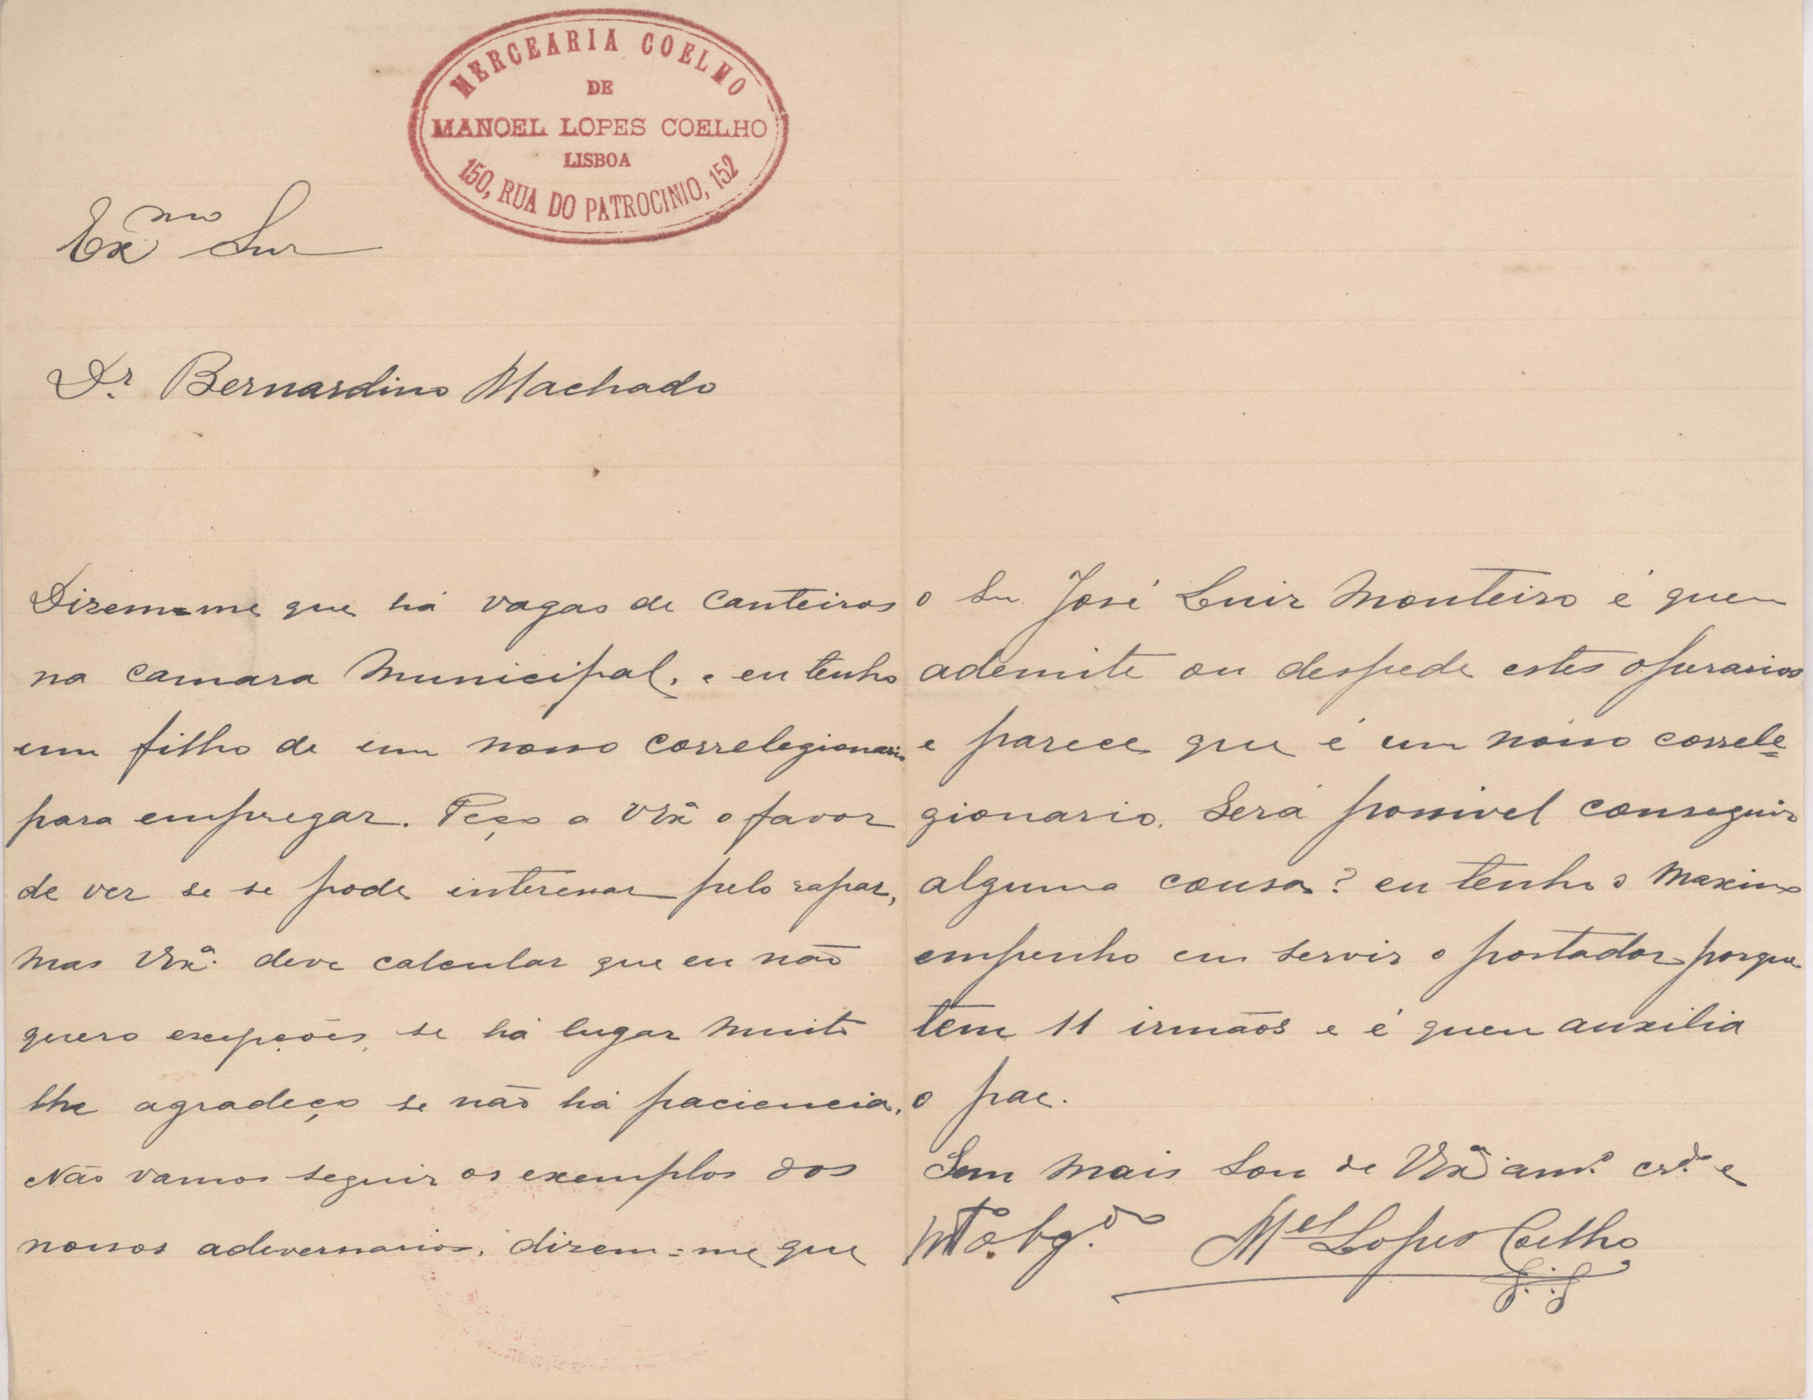 MERCEARIA COELHO
DE
MANOEL LOPES COELHO
LISBOA
150, RUA DO PATROCINIO, 152
Exmo Snr
Dr. Bernardino Machado
Dizem-me que há vagas de Canteiros
na camara Municipal, e eu tenho
um filho de um nosso correlegionario
para empregar. Peço a VExª o favor
de ver se se pode interessar pelo rapaz,
mas VExª. deve calcular que eu não
quero excepções, se há lugar muito
lhe agradeço se não há paciencia.
Não vamos seguir os exemplos dos
nossos adeversarios, dizem-me que
o Snr José Luiz Monteiro é quem
ademite ou despede estes operarios
e parece que é um nósso correle=
gionario. Será possivel conseguir
alguma cousa? eu tenho o Maximo
empenho em servir o portador porque
tem 11 irmãos e é quem auxilia
o pae.
Sem mais Sou de VExª amº. crdº. e
Mto. obgdo. Mel Lopes Coelho